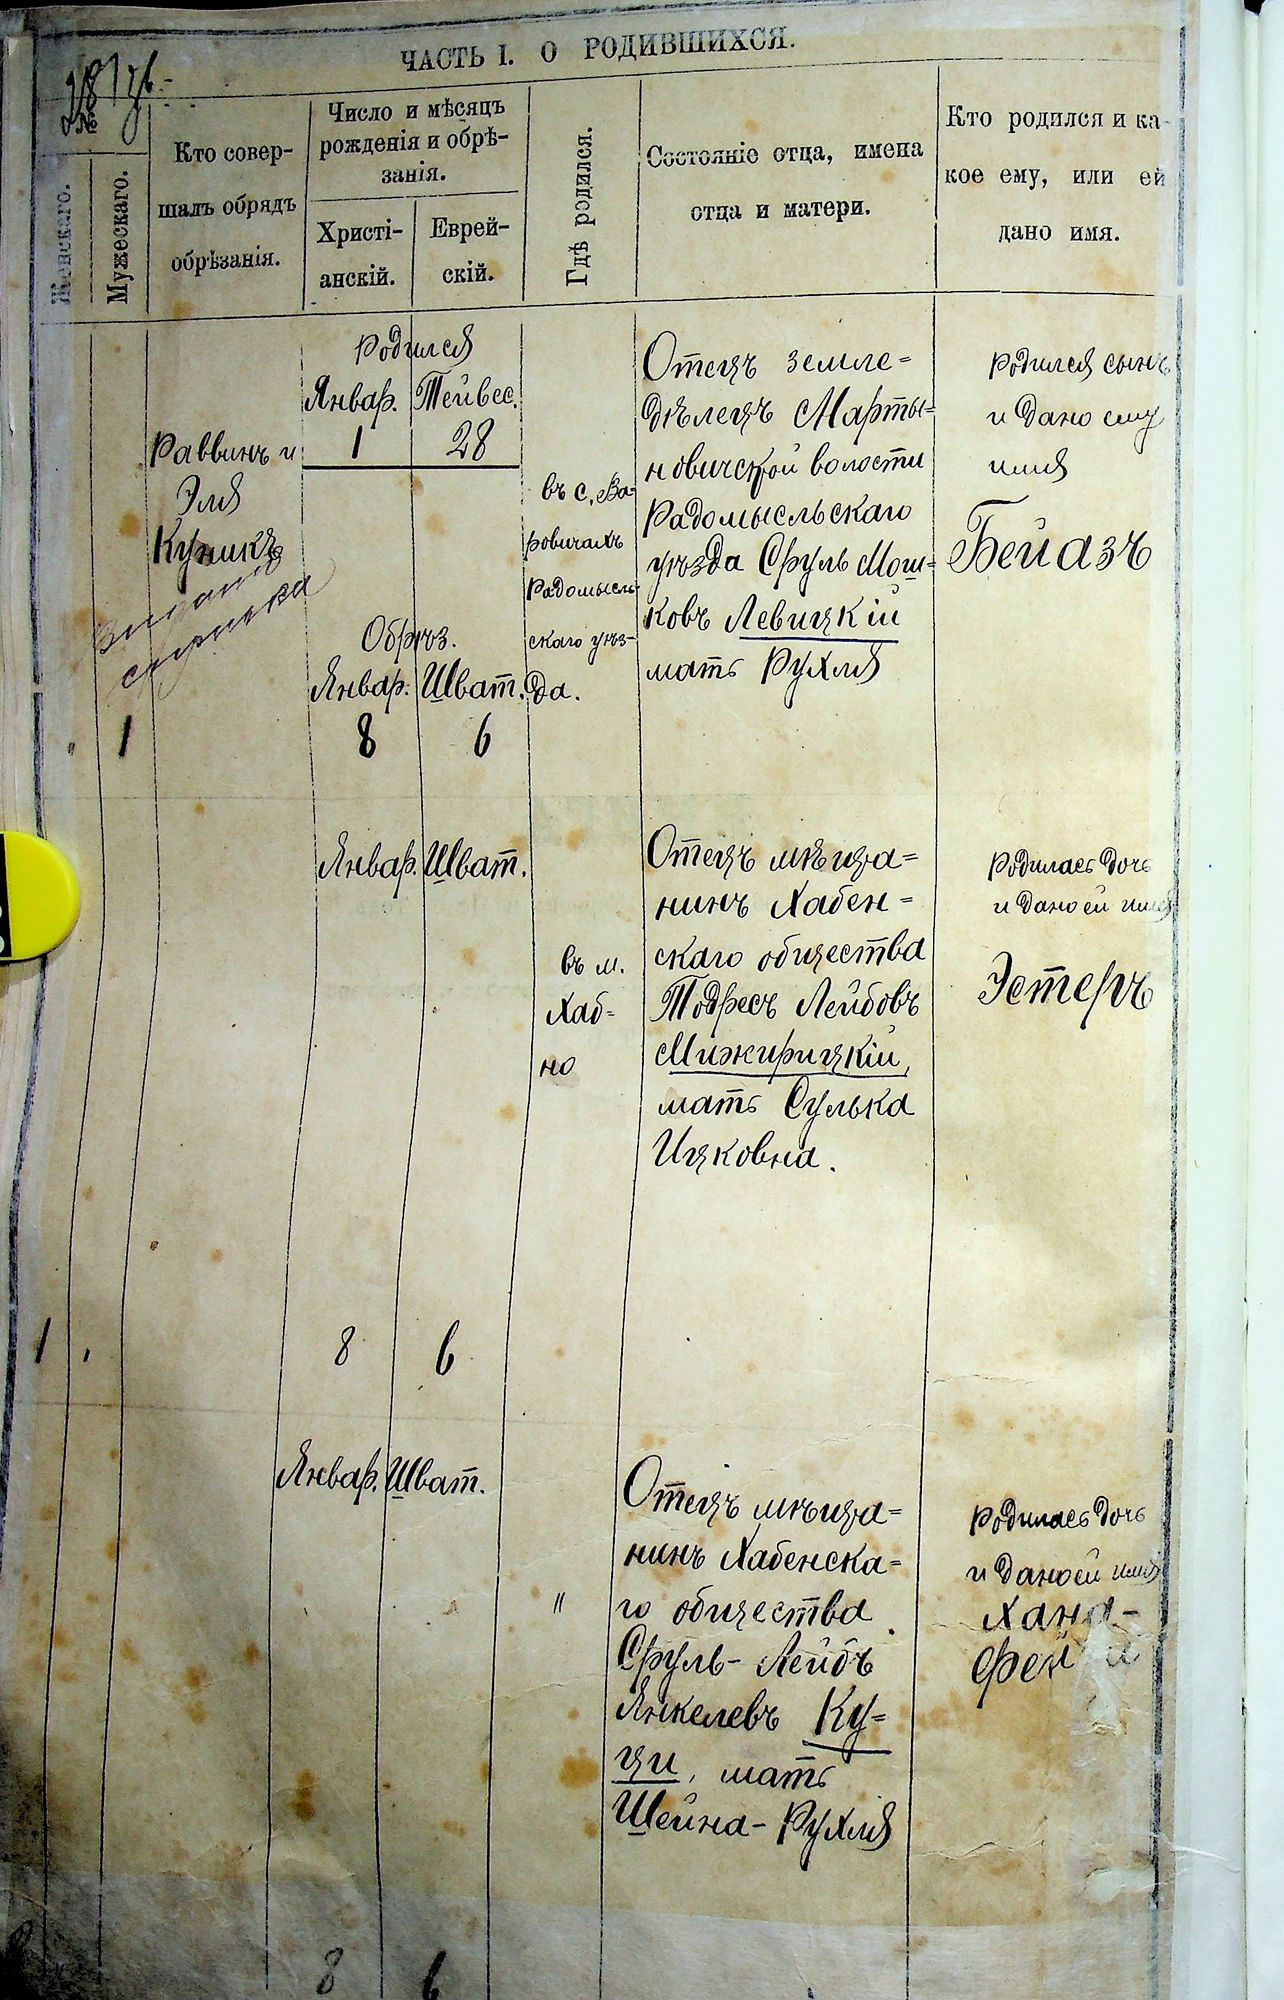 ЧАСТЬ I. О РОДИВШИХСЯ.
№
Женскаго.
Мужескаго.
Кто совер-
шалъ обрядъ
обрѣзанія.
Число и мѣсяцъ
рожденія и обрѣ-
занія.
Христі-
анскій.
Еврей-
скій.
Гдѣ родился.
Состояніе отца, имена
отца и матери.
Кто родился и ка-
кое ему, или ей
дано имя.
1
Раввинъ и
Эля
Куникъ
Родился
Январ. Тейвес.
1 28
Обрѣз.
Январ. Шват.
8 6
въ с. Ва-
ровичахъ
Радомысль-
скаго уѣз-
да.
Отецъ земле=
дѣлецъ Марты=
новичской волости
Радомысльскаго
уѣзда Сруль Мош=
ковъ Левицкій
мать Рухля
Родился сынъ
и дано ему
имя
Бейазъ
1
Январ. Шват.
8 6
въ м.
Хаб=
но
Отецъ мѣща=
нинъ Хабен=
скаго общества
Тодресъ Лейбовъ
Мижирицкій,
мать Сулька
Ицковна.
Родилась дочь
и дано ей имя
Эстеръ
Январ. Шват.
8 6
"
Отецъ мѣща=
нинъ Хабенска=
го общества
Сруль-Лейбъ
Янкелевъ Ку=
ци, мать
Шейна-Рухля
Родилась дочь
и дано ей имя
Хана-